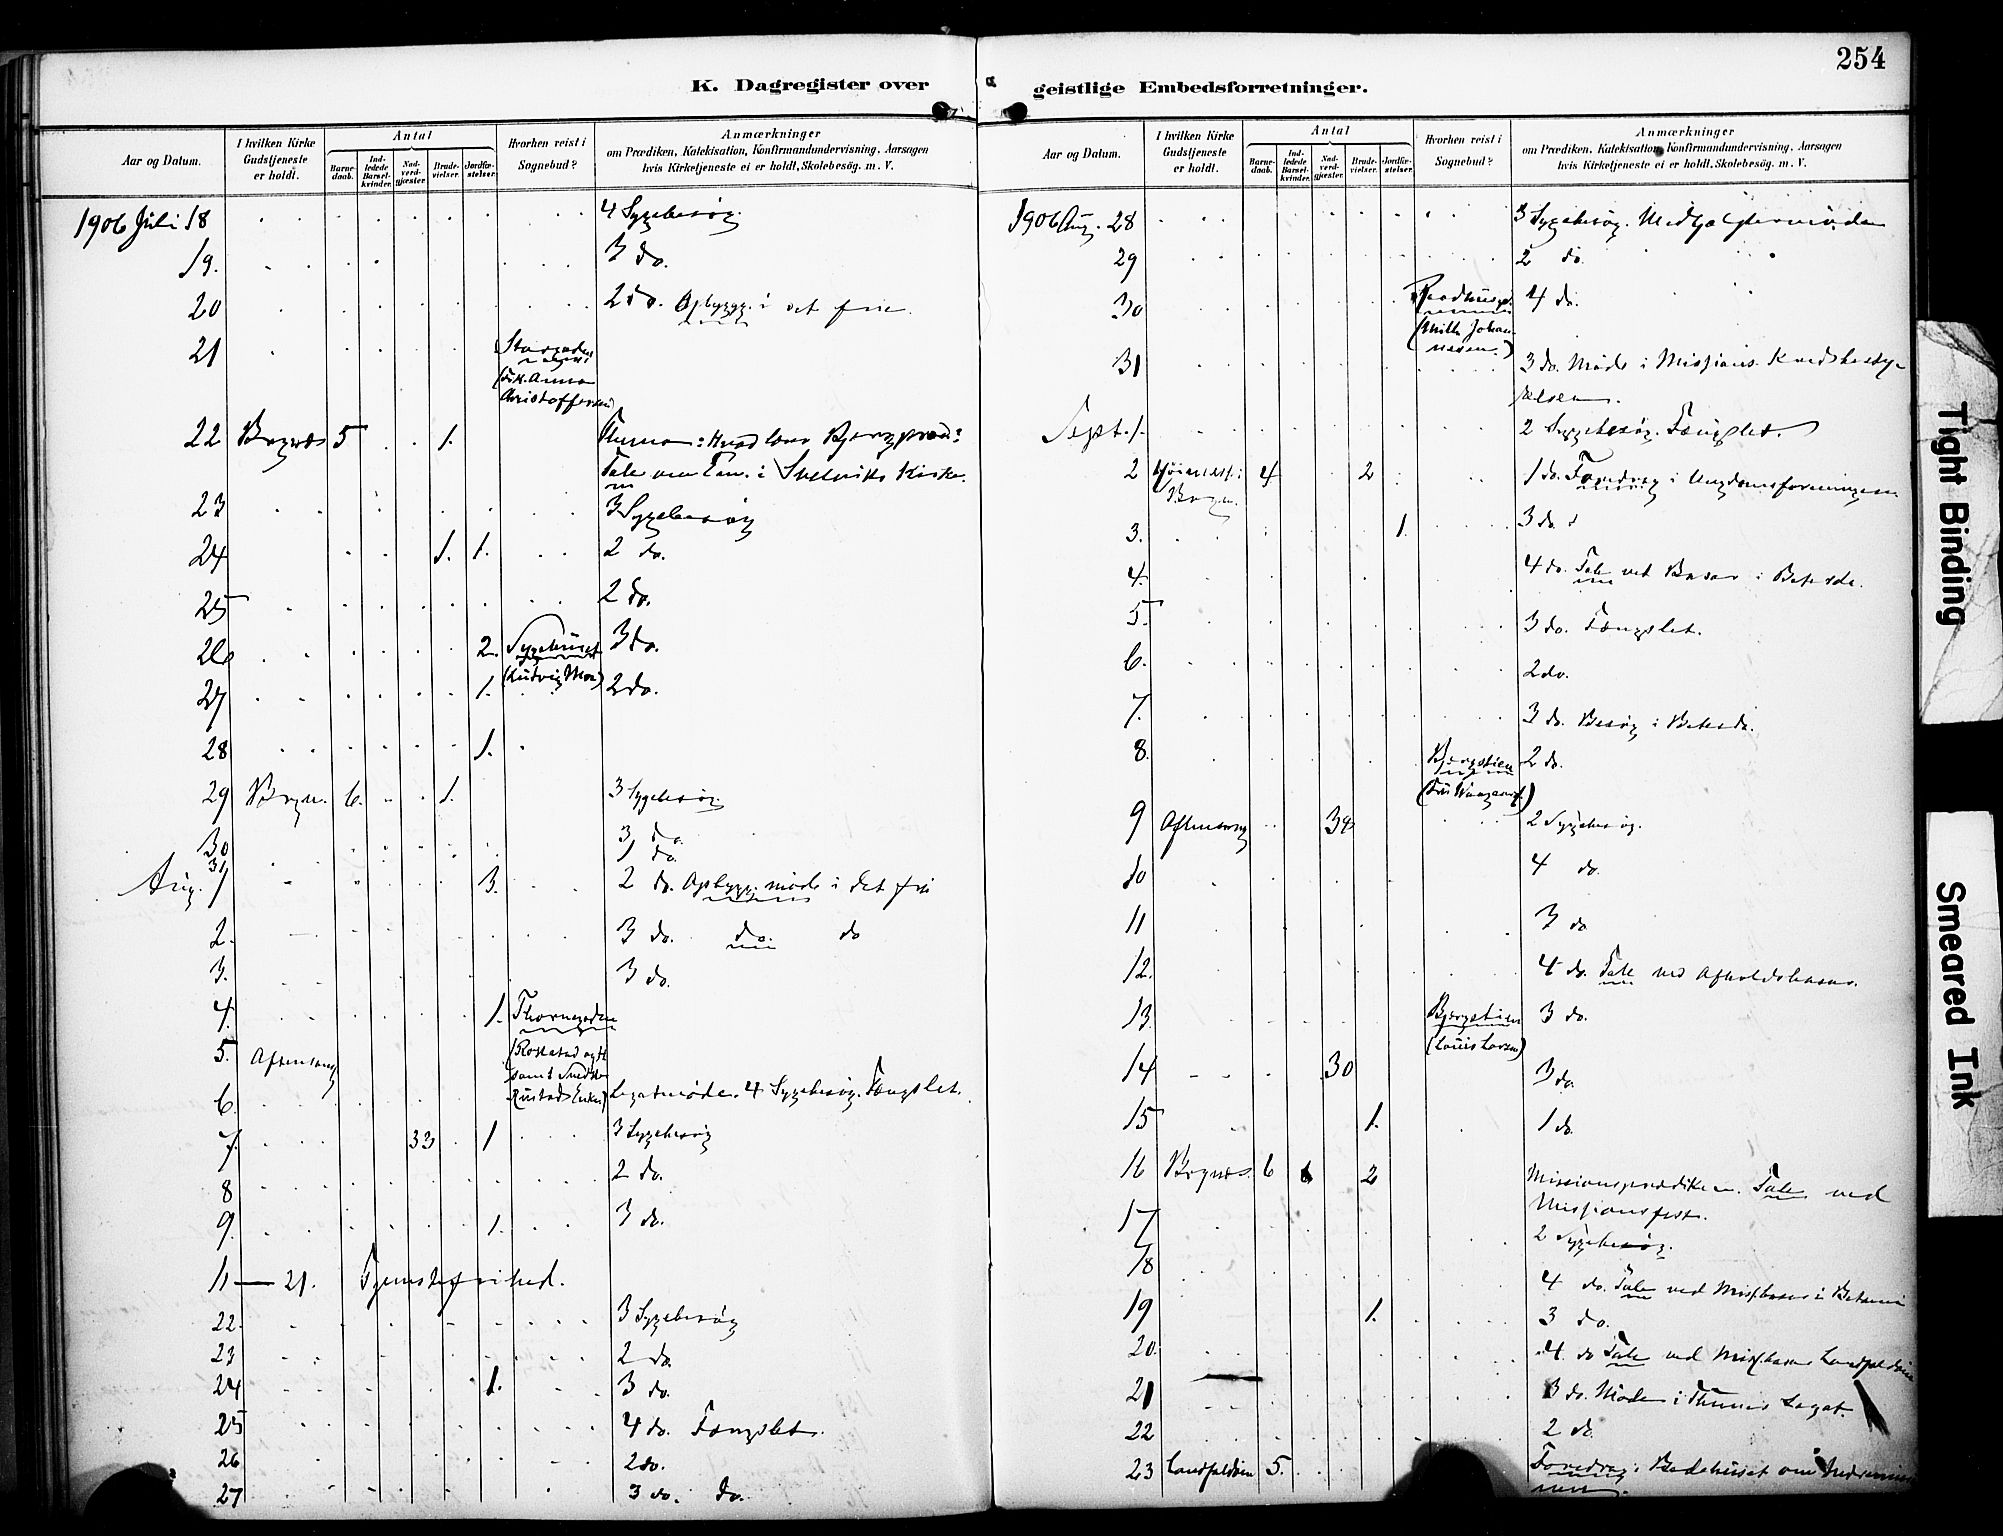 254
K. Dagregister over geistlige Embedsforretninger.
Aar og Datum.
I hvilken Kirke Gudstjeneste er holdt.
Antal
Barnedaab.
Indledede Barselkvinder.
Nadverdgjæster.
Brudevielser.
Jordfæstelser.
Hvorhen reist i Sognebud?
Anmærkninger
om Prædiken, Katekisation, Konfirmandundervisning. Aarsagen
hvis Kirketjeneste ei er holdt, Skolebesög. m. V.
1906 Juli 18 4 Sygebesøg.
19. 3 do.
20 2 do. Opbygg. i det frie.
21
(Frk. Anna
Christoffersen)
22 Bragnæs 5 1. Thema: Hvad lærer Bjergpræd:?
Tale om Em. i Svelviks Kirke.
23 3 Sygebesøg
24 1. 1. 2 do.
25 2 do.
26 2. Sygehuset 3 do.
(Ludvig Moe)
27 1. 2 do.
28 1.
29 Bragn. 6. 1. 3 Sygebesøg
30 3 do.
31 1 do.
Aug. 1 3. 2 do. Opbygg. møde i det fri
2. 3 do. do. do
3. 3 do.
4. 1. Thornegaden
5. Aftensang
samt
Rustads Enke)
6. Legatmøde. 4 Sygebesøg. Fængslet.
7. 33 1 3 Sygebesøg
8 2 do.
9. 1. 3 do.
11 — 21. Tjenstefrihed.
22. 3 Sygebesøg
23 2 do.
24 1. 3 do.
25 4 do. Fængslet.
26 2 do.
27 3 do. do.
Aar og Datum.
I hvilken Kirke Gudstjeneste er holdt.
Antal
Barnedaab.
Indledede Barselkvinder.
Nadverdgjæster.
Brudevielser.
Jordfæstelser.
Hvorhen reist i Sognebud?
Anmærkninger
om Prædiken, Katekisation, Konfirmandundervisning. Aarsagen
hvis Kirketjeneste ei er holdt, Skolebesög. m. V.
1906 Aug. 28 3 Sygebesøg. Medhjælpermøde
29 2 do.
30 4 do.
(Mille Johannesen.)
31 3 do. Møde i Missions Kredsbesty-
relsen.
Sept. 1. 2 Sygebesøg. Fængslet.
2 Høimesse i 4 2 1 do. Foredrag i Ungdomsforeningen
Bragn.
3. 1. 3 do.
4. 4 do. Tale ved Basar i Betesda.
5. 3 do. Fængslet.
6. 2 do.
7. 3 do. Besøg i Betesda.
8. Bjergstien 2 do.
9 Aftensang 34 2 Sygebesøg.
10 4 do.
11 3 do
12. 4 do. Tale ved Afholdsbasar.
13. Bjergstien 3 do.
(Louis Larsen)
14 30 3 do.
15 1. 1 do.
16 Bragnæs. 6 2 Missionsprædiken. Tale ved
Missionsfest.
17 2 Sygebesøg.
18 4 do. Tale ved Miss.basar i Betania
19 1. 3 do.
20. 4 do Tale ved Miss.basar Landfaldøien
21 3 do. Møde i Thunes Legat.
22 2 do.
23 Landfaldøien 5. Foredrag i Bedehuset om Indremissionen.
Tight Binding
Smeared Ink